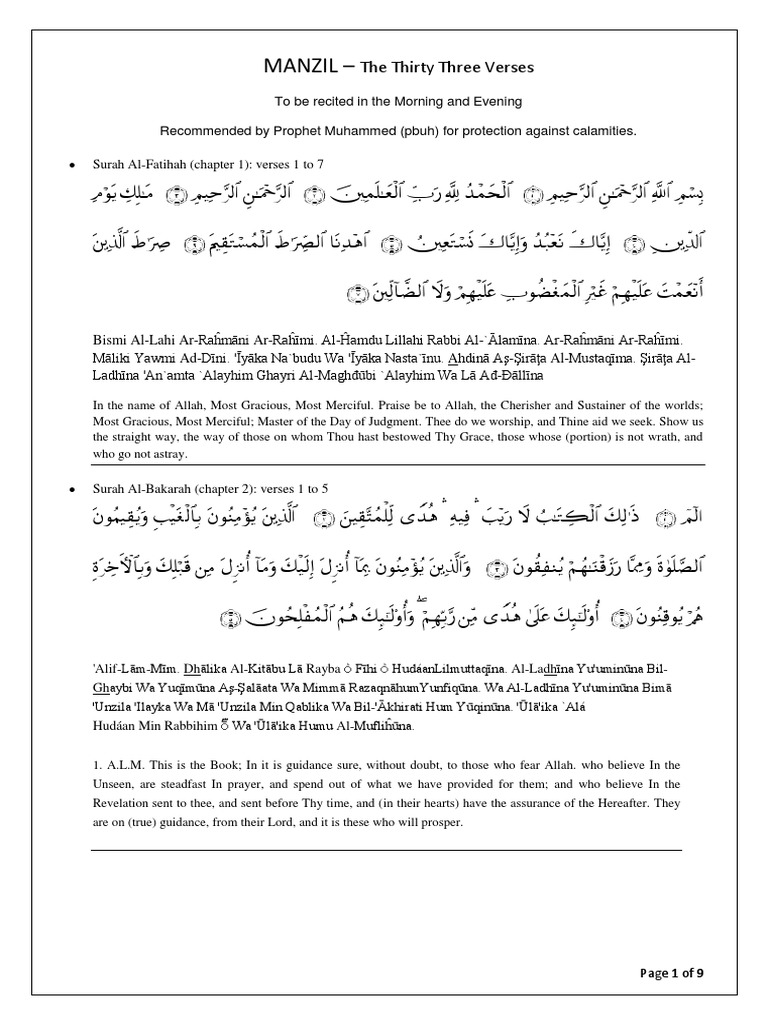 MANZIL – The Thirty Three Verses
To be recited in the Morning and Evening
Recommended by Prophet Muhammed (pbuh) for protection against calamities.
• Surah Al-Fatihah (chapter 1): verses 1 to 7
بِسْمِ ٱللَّهِ ٱلرَّحْمَـٰنِ ٱلرَّحِيمِ ﴿١﴾ ٱلْحَمْدُ لِلَّهِ رَبِّ ٱلْعَـٰلَمِينَ ﴿٢﴾ ٱلرَّحْمَـٰنِ ٱلرَّحِيمِ ﴿٣﴾ مَـٰلِكِ يَوْمِ
ٱلدِّينِ ﴿٤﴾ إِيَّاكَ نَعْبُدُ وَإِيَّاكَ نَسْتَعِينُ ﴿٥﴾ ٱهْدِنَا ٱلصِّرَٰطَ ٱلْمُسْتَقِيمَ ﴿٦﴾ صِرَٰطَ ٱلَّذِينَ
أَنْعَمْتَ عَلَيْهِمْ غَيْرِ ٱلْمَغْضُوبِ عَلَيْهِمْ وَلَا ٱلضَّآلِّينَ ﴿٧﴾
Bismi Al-Lahi Ar-Raĥmāni Ar-Raĥīmi. Al-Ĥamdu Lillahi Rabbi Al-`Ālamīna. Ar-Raĥmāni Ar-Raĥīmi.
Māliki Yawmi Ad-Dīni. 'Īyāka Na`budu Wa 'Īyāka Nasta`īnu. Ahdinā Aş-Şirāţa Al-Mustaqīma. Şirāţa Al-
Ladhīna 'An`amta `Alayhim Ghayri Al-Maghđūbi `Alayhim Wa Lā Ađ-Đāllīna
In the name of Allah, Most Gracious, Most Merciful. Praise be to Allah, the Cherisher and Sustainer of the worlds;
Most Gracious, Most Merciful; Master of the Day of Judgment. Thee do we worship, and Thine aid we seek. Show us
the straight way, the way of those on whom Thou hast bestowed Thy Grace, those whose (portion) is not wrath, and
who go not astray.
• Surah Al-Bakarah (chapter 2): verses 1 to 5
الٓمٓ ﴿١﴾ ذَٰلِكَ ٱلْكِتَـٰبُ لَا رَيْبَ ۛ فِيهِ ۛ هُدًى لِّلْمُتَّقِينَ ﴿٢﴾ ٱلَّذِينَ يُؤْمِنُونَ بِٱلْغَيْبِ وَيُقِيمُونَ
ٱلصَّلَوٰةَ وَمِمَّا رَزَقْنَـٰهُمْ يُنفِقُونَ ﴿٣﴾ وَٱلَّذِينَ يُؤْمِنُونَ بِمَآ أُنزِلَ إِلَيْكَ وَمَآ أُنزِلَ مِن قَبْلِكَ وَبِٱلْـَٔاخِرَةِ
هُمْ يُوقِنُونَ ﴿٤﴾ أُو۟لَـٰٓئِكَ عَلَىٰ هُدًى مِّن رَّبِّهِمْ ۖ وَأُو۟لَـٰٓئِكَ هُمُ ٱلْمُفْلِحُونَ ﴿٥﴾
'Alif-Lām-Mīm. Dhālika Al-Kitābu Lā Rayba ۛ Fīhi ۛ HudáanLilmuttaqīna. Al-Ladhīna Yu'uminūna Bil-
Ghaybi Wa Yuqīmūna Aş-Şalāata Wa Mimmā RazaqnāhumYunfiqūna. Wa Al-Ladhīna Yu'uminūna Bimā
'Unzila 'Ilayka Wa Mā 'Unzila Min Qablika Wa Bil-'Ākhirati Hum Yūqinūna. 'Ūlā'ika `Alá
Hudáan Min Rabbihim ۖ Wa 'Ūlā'ika Humu Al-Mufliĥūna.
1. A.L.M. This is the Book; In it is guidance sure, without doubt, to those who fear Allah. who believe In the
Unseen, are steadfast In prayer, and spend out of what we have provided for them; and who believe In the
Revelation sent to thee, and sent before Thy time, and (in their hearts) have the assurance of the Hereafter. They
are on (true) guidance, from their Lord, and it is these who will prosper.
Page 1 of 9